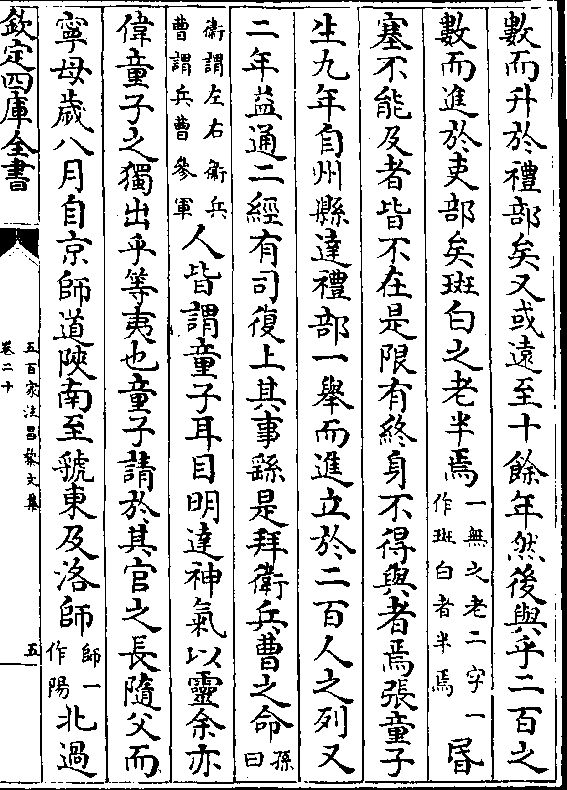 數而升於禮部矣又或遠至十餘年然後與乎二百之
數而進於吏部矣斑白之老半焉一無之老二字一作斑白者半焉昬
塞不能及者皆不在是限有終身不得與者焉張童子
生九年自州縣達禮部一舉而進立於二百人之列又
二年益通二經有司復上其事繇是拜衛兵曹之命孫曰
衛謂左右衛兵曹謂兵曹參軍人皆謂童子耳目明達神氣以靈余亦
偉童子之獨出乎等夷也童子請於其官之長隨父而
寧母歲八月自京師道陜南至虢東及洛師師一作陽北過
欽定四庫全書
五百家注昌黎文集
卷二十
五